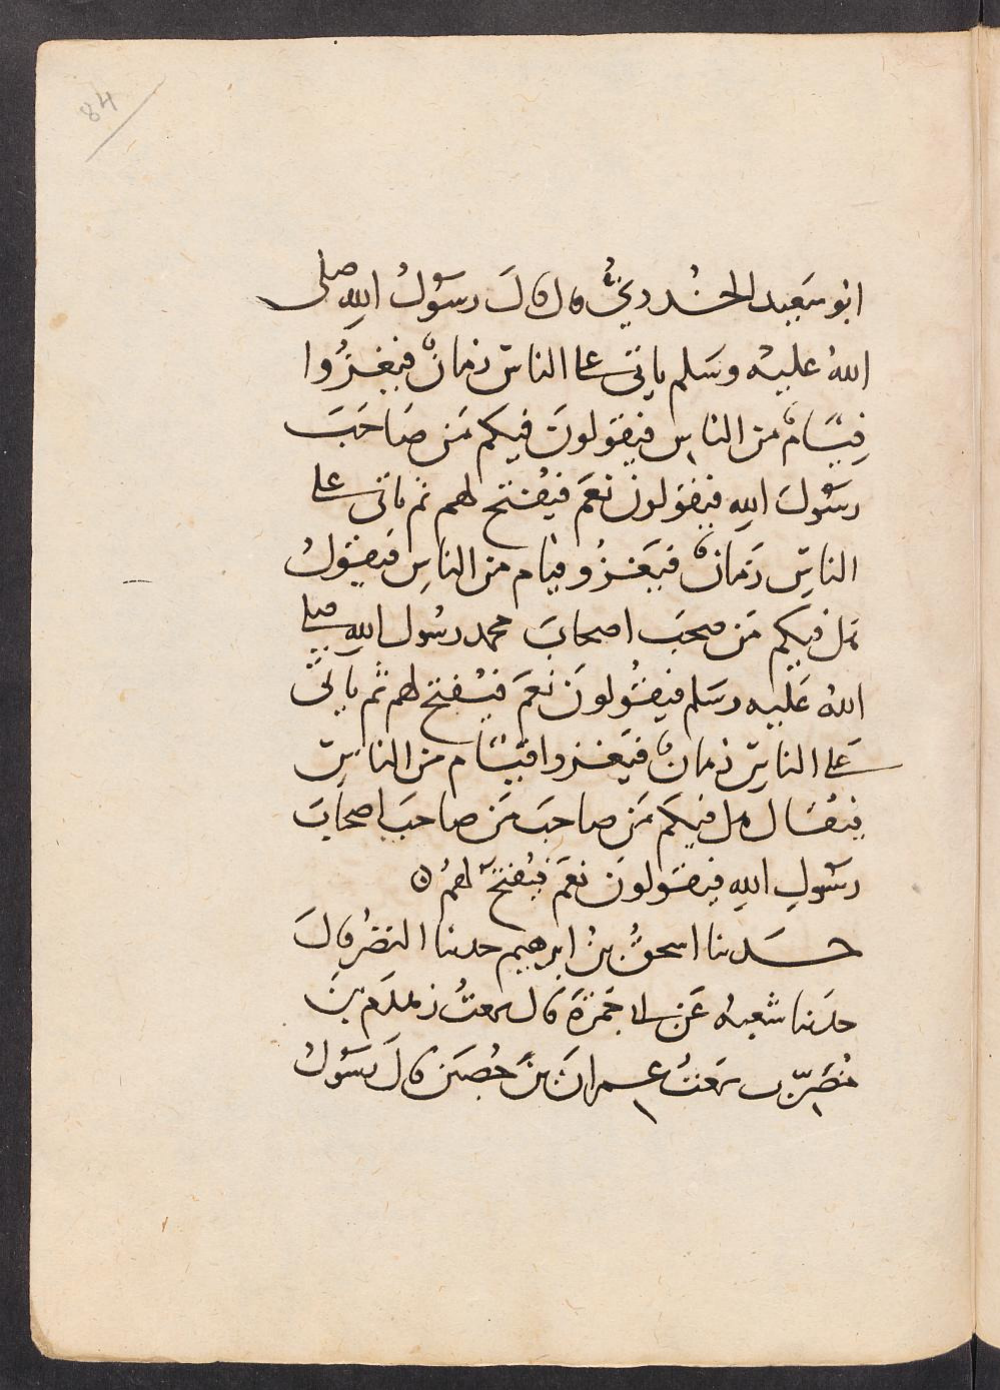 84
ابو سَعيد الخُدريُّ قال قالَ رسَوُلُ اللهِ صلى
اللهُ عليه وسَلم ياتى على الناسِ زمانٌ فيَغزُوا
فِيَامٌ من الناسِ فيقولونَ فيكم مَن صَاحَبَ
رسَوُلَ اللهِ فيقولونَ نعَم فيُفتح لهم ثم ياتى على
الناسِ زَمَانٌ فيَغزُو فيام من الناسِ فيَقوُلُ
هل فيكم مَن صحبَ اصحابَ محمد رسُول اللهِ صلى
اللهُ عَليه وسَلم فيقُولونَ نَعَم فيُفتح لهم ثم ياتى
عَلى الناسِ زمانٌ فيَغزوا فيَامٌ من الناسِ
فيُقَال هل فيكم مَن صاحَبَ مَن صاحَبَ اصحَابَ
رسَوُلِ اللهِ فيقولونَ نعَم فيُفتحَ لهمُ ه
حَدثنا اسحقُ بنُ ابرهيم حدثنا النضرُ قالَ
حدَثنا شعبهُ عَن ابى جَمرَةَ قال سمعتُ زهدَم بنَ
مُضَرِّب سمَعتُ عِمرانَ بنَ حُصَين قالَ رسَوُلُ